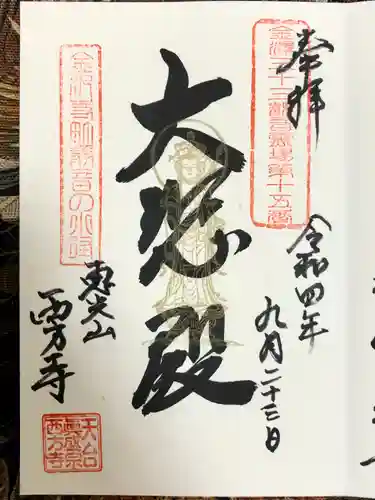 奉拝
金澤三十三観音霊場第十五番
令和四年
九月二十三日
大悲殿
恵光山
西方寺
天台真盛宗西方寺